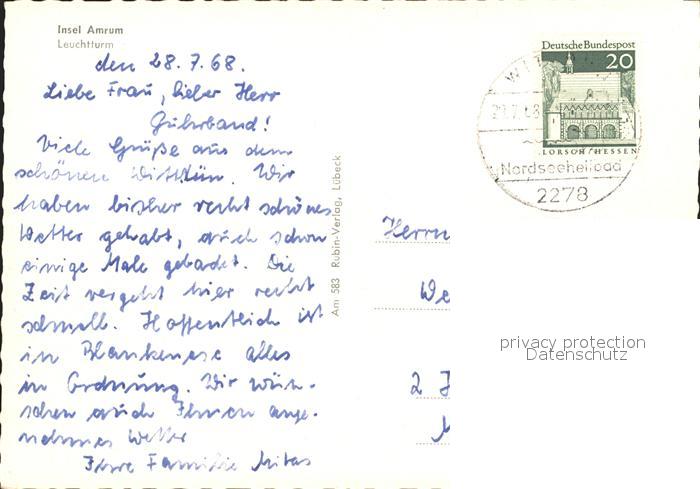 Insel Amrum
Leuchtturm
den 28.7.68.
Liebe Frau, lieber Herr
Guhrband!
Viele Grüße aus dem
schönen Wittdün. Wir
haben bisher recht schönes
Wetter gehabt, auch schon
einige Male gebadet. Die
Zeit vergeht hier recht
schnell. Hoffentlich ist
in Blankenese alles
in Ordnung. Wir wün-
schen auch Ihnen ange-
nehmes Wetter
Ihre Familie
Am 583 Rubin-Verlag, Lübeck
Deutsche Bundespost
20
LORSCH/HESSEN
Nordseeheilbad
2278
Herrn
We
2
privacy protection
Datenschutz